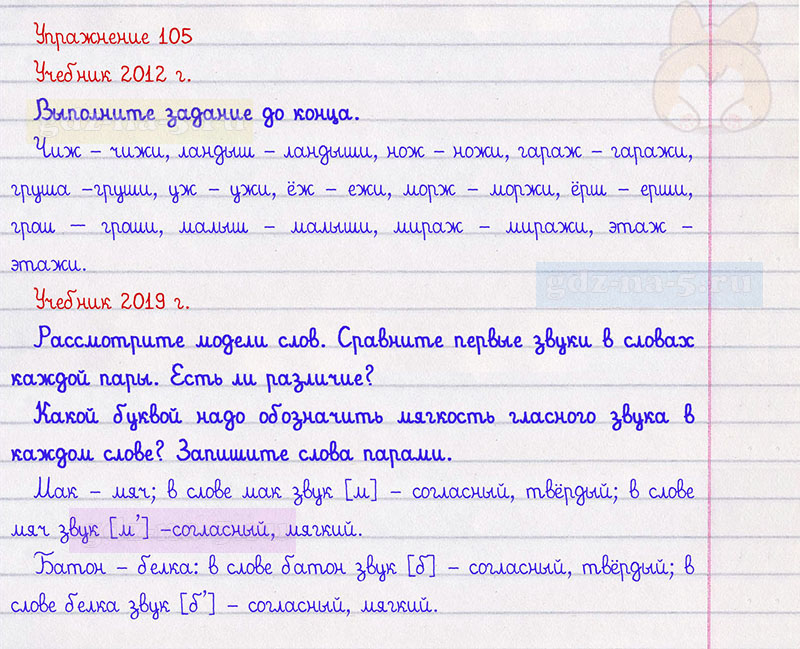 Упражнение 105
Учебник 2012 г.
Выполните задание до конца.
Чиж – чижи, ландыш – ландыши, нож – ножи, гараж – гаражи,
груша –груши, уж – ужи, ёж – ежи, морж – моржи, ёрш – ерши,
грош – гроши, малыш – малыши, мираж – миражи, этаж –
этажи.
gdz-na-5.ru
Учебник 2019 г.
Рассмотрите модели слов. Сравните первые звуки в словах
каждой пары. Есть ли различие?
Какой буквой надо обозначить мягкость гласного звука в
каждом слове? Запишите слова парами.
Мак – мяч; в слове мак звук [м] – согласный, твёрдый; в слове
мяч звук [м’] –согласный, мягкий.
Батон – белка: в слове батон звук [б] – согласный, твёрдый; в
слове белка звук [б’] – согласный, мягкий.